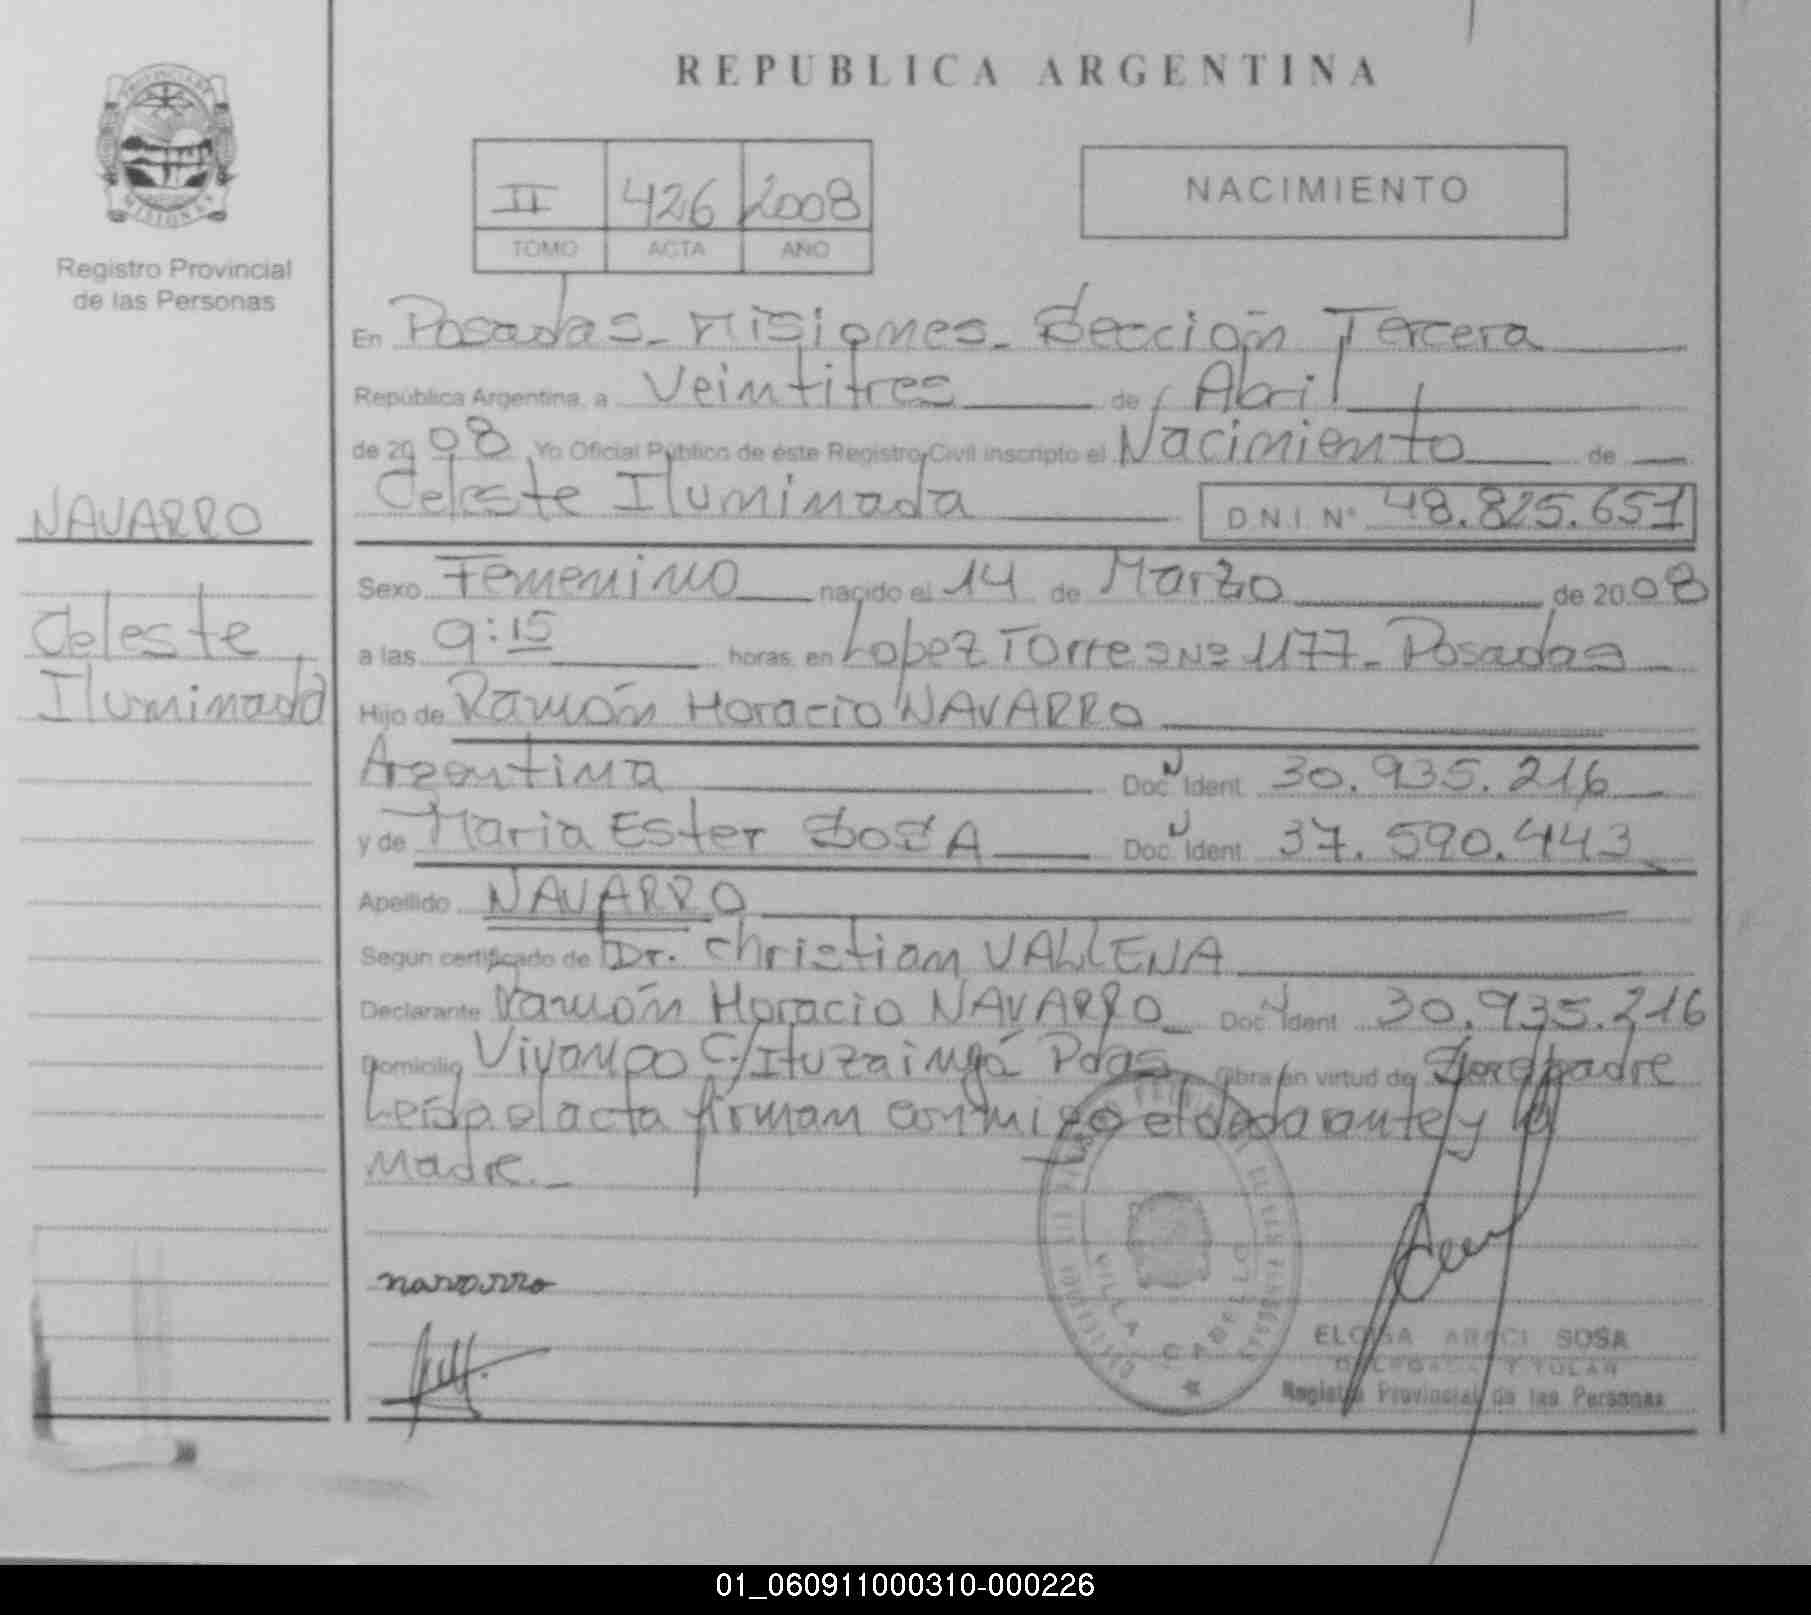 REPUBLICA ARGENTINA
PROVINCIA DE
MISIONES
Registro Provincial
de las Personas
II 426 2008
TOMO ACTA AÑO
NACIMIENTO
En Posadas - Misiones - Sección Tercera
República Argentina, a Veintitres de Abril
de 2008 Yo Oficial Público de éste Registro Civil inscripto el Nacimiento de
Celeste Iluminada DNI Nº 48.825.651
NAVARRO
Celeste
Iluminada
Sexo Femenino nacido el 14 de Marzo de 2008
a las 9:15 horas en Lopez Torres Nº 1177 - Posadas
Hijo de Ramón Horacio NAVARRO
Argentina Doc N Ident 30.935.216
y de Maria Ester SOSA Doc Ident 37.590.443
Apellido NAVARRO
Según certificado de Dr. Christian VALLENA
Declarante Ramón Horacio NAVARRO Doc Ident 30.935.216
Domicilio C/Ituzaingó Pdas Obra en virtud de padre
Leida el acta firman conmigo el declarante y la
Madre.-
navarro
VILLA CABELLO
ELOISA ARACI SOSA
Registro Provincial de las Personas
01_060911000310-000226